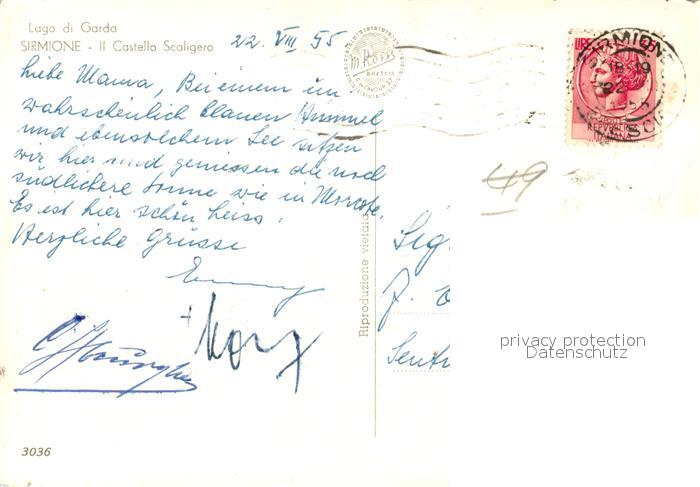 Lago di Garda
SIRMIONE - Il Castello Scaligero
22. VIII 55
liebe Mama, Bei einem un
wahrscheinlich blauen Himmel
und ebensolchem See sitzen
wir hier und geniessen die noch
südlichere Sonne wie in Morcote.
Es ist hier schön heiss.
Herzliche Grüsse
Riproduzione vietata
BRESCIA
LIRE
SIRMIONE
22
REPVBBLICA
ITALIANA
49
Sig.
privacy protection
Datenschutz
3036